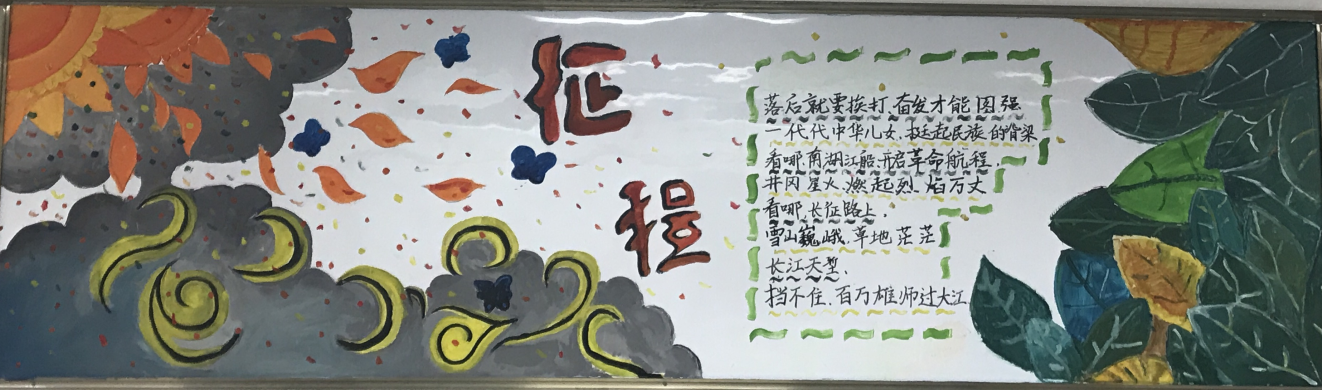 征
程
落后就要挨打、奋发才能图强
一代代中华儿女、挺起民族的脊梁
看哪、南湖江船、开启革命航程、
井冈星火、燃起烈焰万丈
看哪、长征路上、
雪山巍峨、草地茫茫
长江天堑、
挡不住、百万雄师过大江